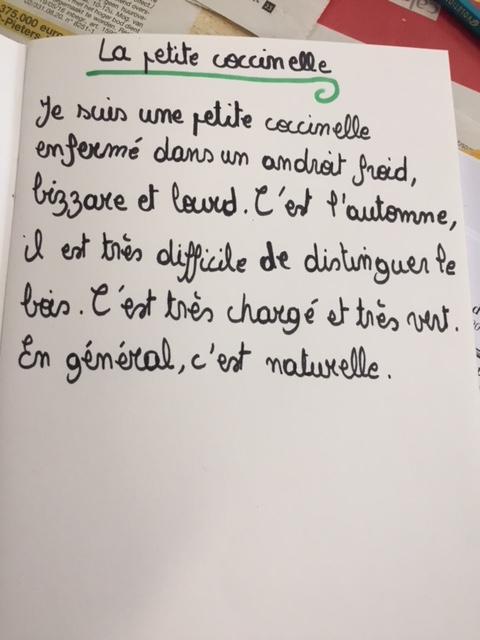 La petite coccinelle
Je suis une petite coccinelle
enfermé dans un androit froid,
bizzare et lourd. C'est l'automne,
il est très difficile de distinguer le
bois. C'est très chargé et très vert.
En général, c'est naturelle.
375.000 euro